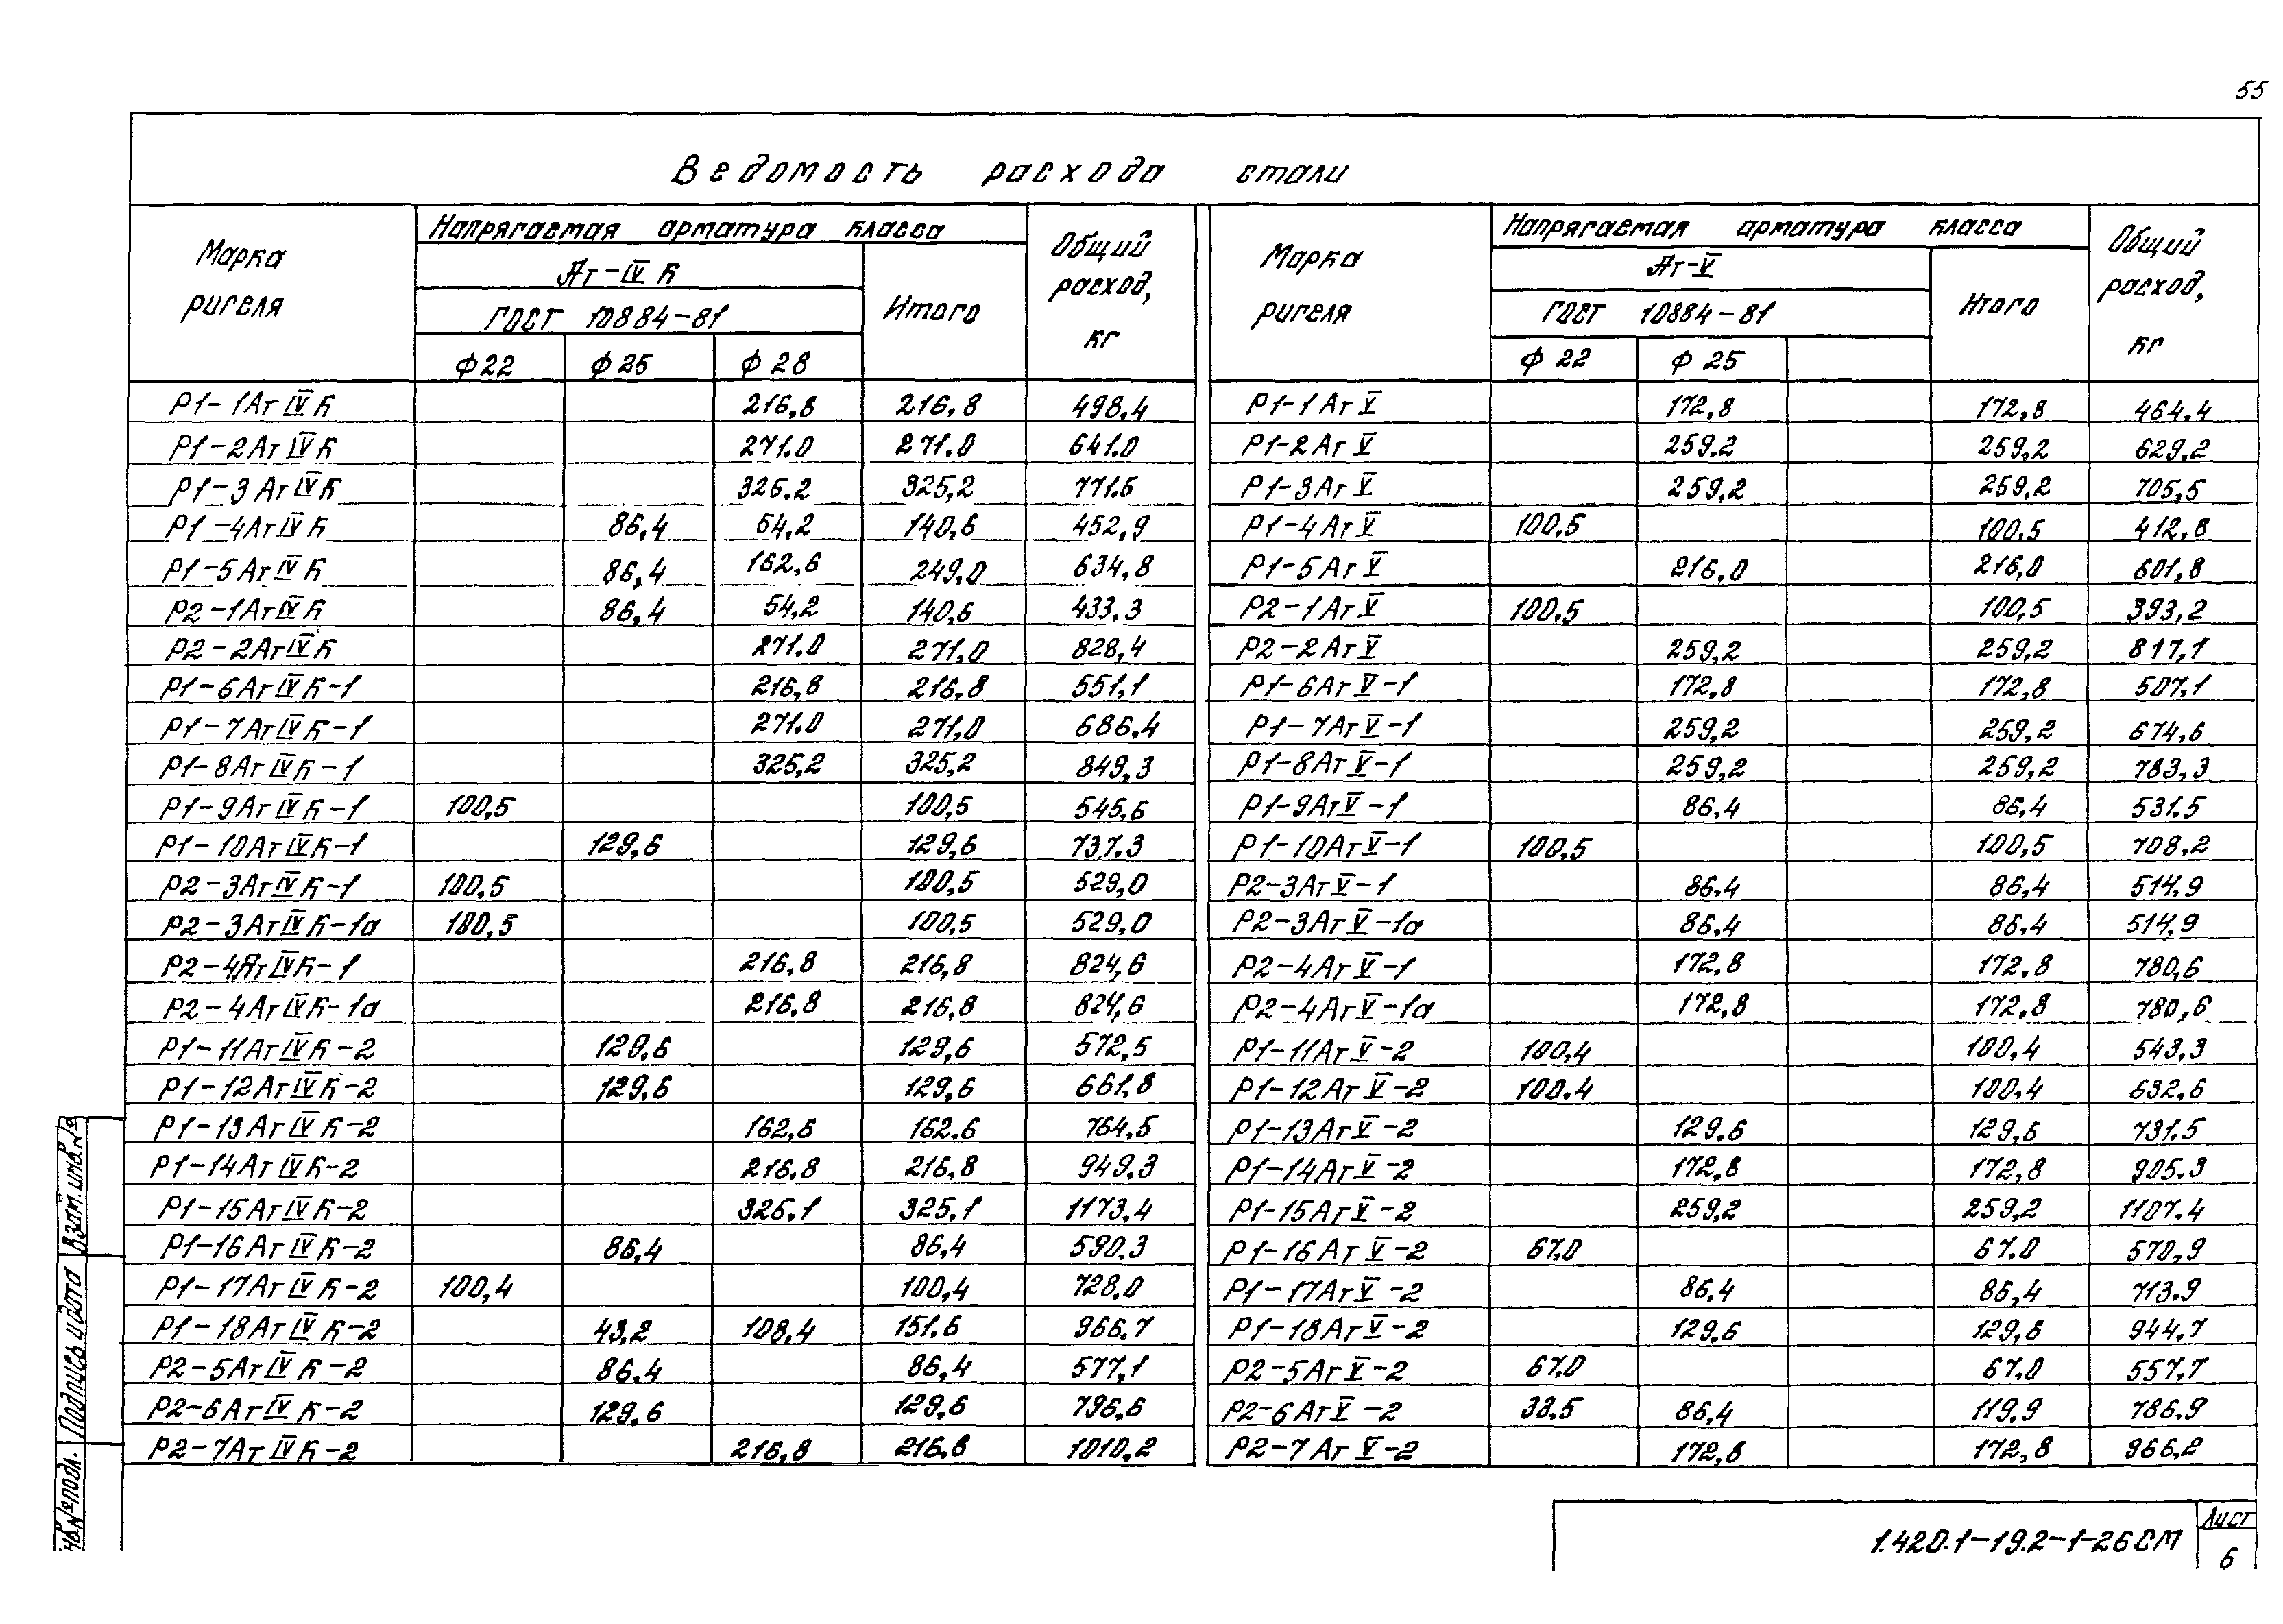 55
Ведомость расхода стали
Марка ригеля | Напрягаемая арматура класса | Общий расход, кг | Марка ригеля | Напрягаемая арматура класса | Общий расход, кг
Ат-IVК | Итого | Ат-V | Итого
ГОСТ 10884-81 | ГОСТ 10884-81
ф22 | ф25 | ф28 | ф22 | ф25
Р1-1АтIVК 216,8 216,8 498,4 Р1-1АтV 172,8 172,8 464,4
Р1-2АтIVК 271.0 271.0 641.0 Р1-2АтV 259.2 259,2 629,2
Р1-3АтIVК 325.2 325,2 771.5 Р1-3АтV 259,2 259,2 705,5
Р1-4АтIVК 86,4 54,2 140,6 452,9 Р1-4АтV 100.5 100.5 412,8
Р1-5АтIVК 86,4 162,6 249,0 634,8 Р1-5АтV 216,0 216,0 601,8
Р2-1АтIVК 86,4 54,2 140,6 433,3 Р2-1АтV 100.5 100,5 393,2
Р2-2АтIVК 271.0 271,0 828,4 Р2-2АтV 259,2 259,2 817,1
Р1-6АтIVК-1 216,8 216,8 551,1 Р1-6АтV-1 172,8 172,8 507.1
Р1-7АтIVК-1 271.0 271,0 686,4 Р1-7АтV-1 259,2 259,2 674,6
Р1-8АтIVК-1 325,2 325,2 849,3 Р1-8АтV-1 259,2 259,2 783,3
Р1-9АтIVК-1 100,5 100,5 545,6 Р1-9АтV-1 86,4 86,4 531.5
Р1-10АтIVК-1 129,6 129,6 737.3 Р1-10АтV-1 100,5 100,5 708,2
Р2-3АтIVК-1 100.5 100,5 529,0 Р2-3АтV-1 86.4 86,4 514.9
Р2-3АтIVК-1а 100,5 100,5 529,0 Р2-3АтV-1а 86.4 86.4 514,9
Р2-4АтIVК-1 216,8 216,8 824,6 Р2-4АтV-1 172,8 172,8 780,6
Р2-4АтIVК-1а 216,8 216,8 824,6 Р2-4АтV-1а 172,8 172,8 780,6
Р1-11АтIVК-2 129,6 129,6 572,5 Р1-11АтV-2 100,4 100,4 543,3
Р1-12АтIVК-2 129,6 129,6 661.8 Р1-12АтV-2 100.4 100.4 632,6
Р1-13АтIVК-2 162,6 162,6 764,5 Р1-13АтV-2 129,6 129,6 731.5
Р1-14АтIVК-2 216,8 216,8 949.3 Р1-14АтV-2 172,8 172,8 905.3
Р1-15АтIVК-2 325,1 325,1 1173,4 Р1-15АтV-2 259,2 259,2 1107.4
Р1-16АтIVК-2 86,4 86,4 590.3 Р1-16АтV-2 67.0 67.0 570,9
Р1-17АтIVК-2 100,4 100,4 728,0 Р1-17АтV-2 86,4 86,4 713.9
Р1-18АтIVК-2 43,2 108,4 151.6 966.7 Р1-18АтV-2 129,6 129,6 944.7
Р2-5АтIVК-2 86.4 86,4 577,1 Р2-5АтV-2 67.0 67.0 557.7
Р2-6АтIVК-2 129,6 129,6 796,6 Р2-6АтV-2 33.5 86,4 119,9 786.9
Р2-7АтIVК-2 216,8 216,8 1010,2 Р2-7АтV-2 172,8 172,8 966,2
Взам.инв.№
Подпись и дата
инв.№подл.
1.420.1-19.2-1-26СМ
Лист
6